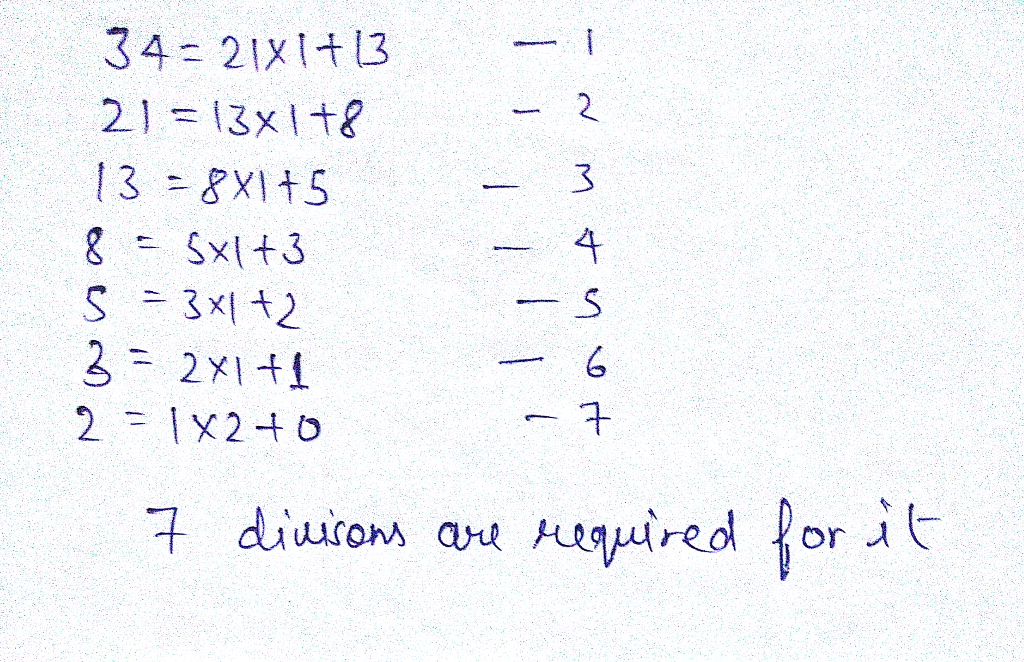 34 = 21X1+13 — 1
21 = 13x1+8 — 2
13 = 8X1+5 — 3
8 = 5x1+3 — 4
5 = 3x1+2 — 5
3 = 2x1+1 — 6
2 = 1x2+0 — 7
7 divisons are required for it